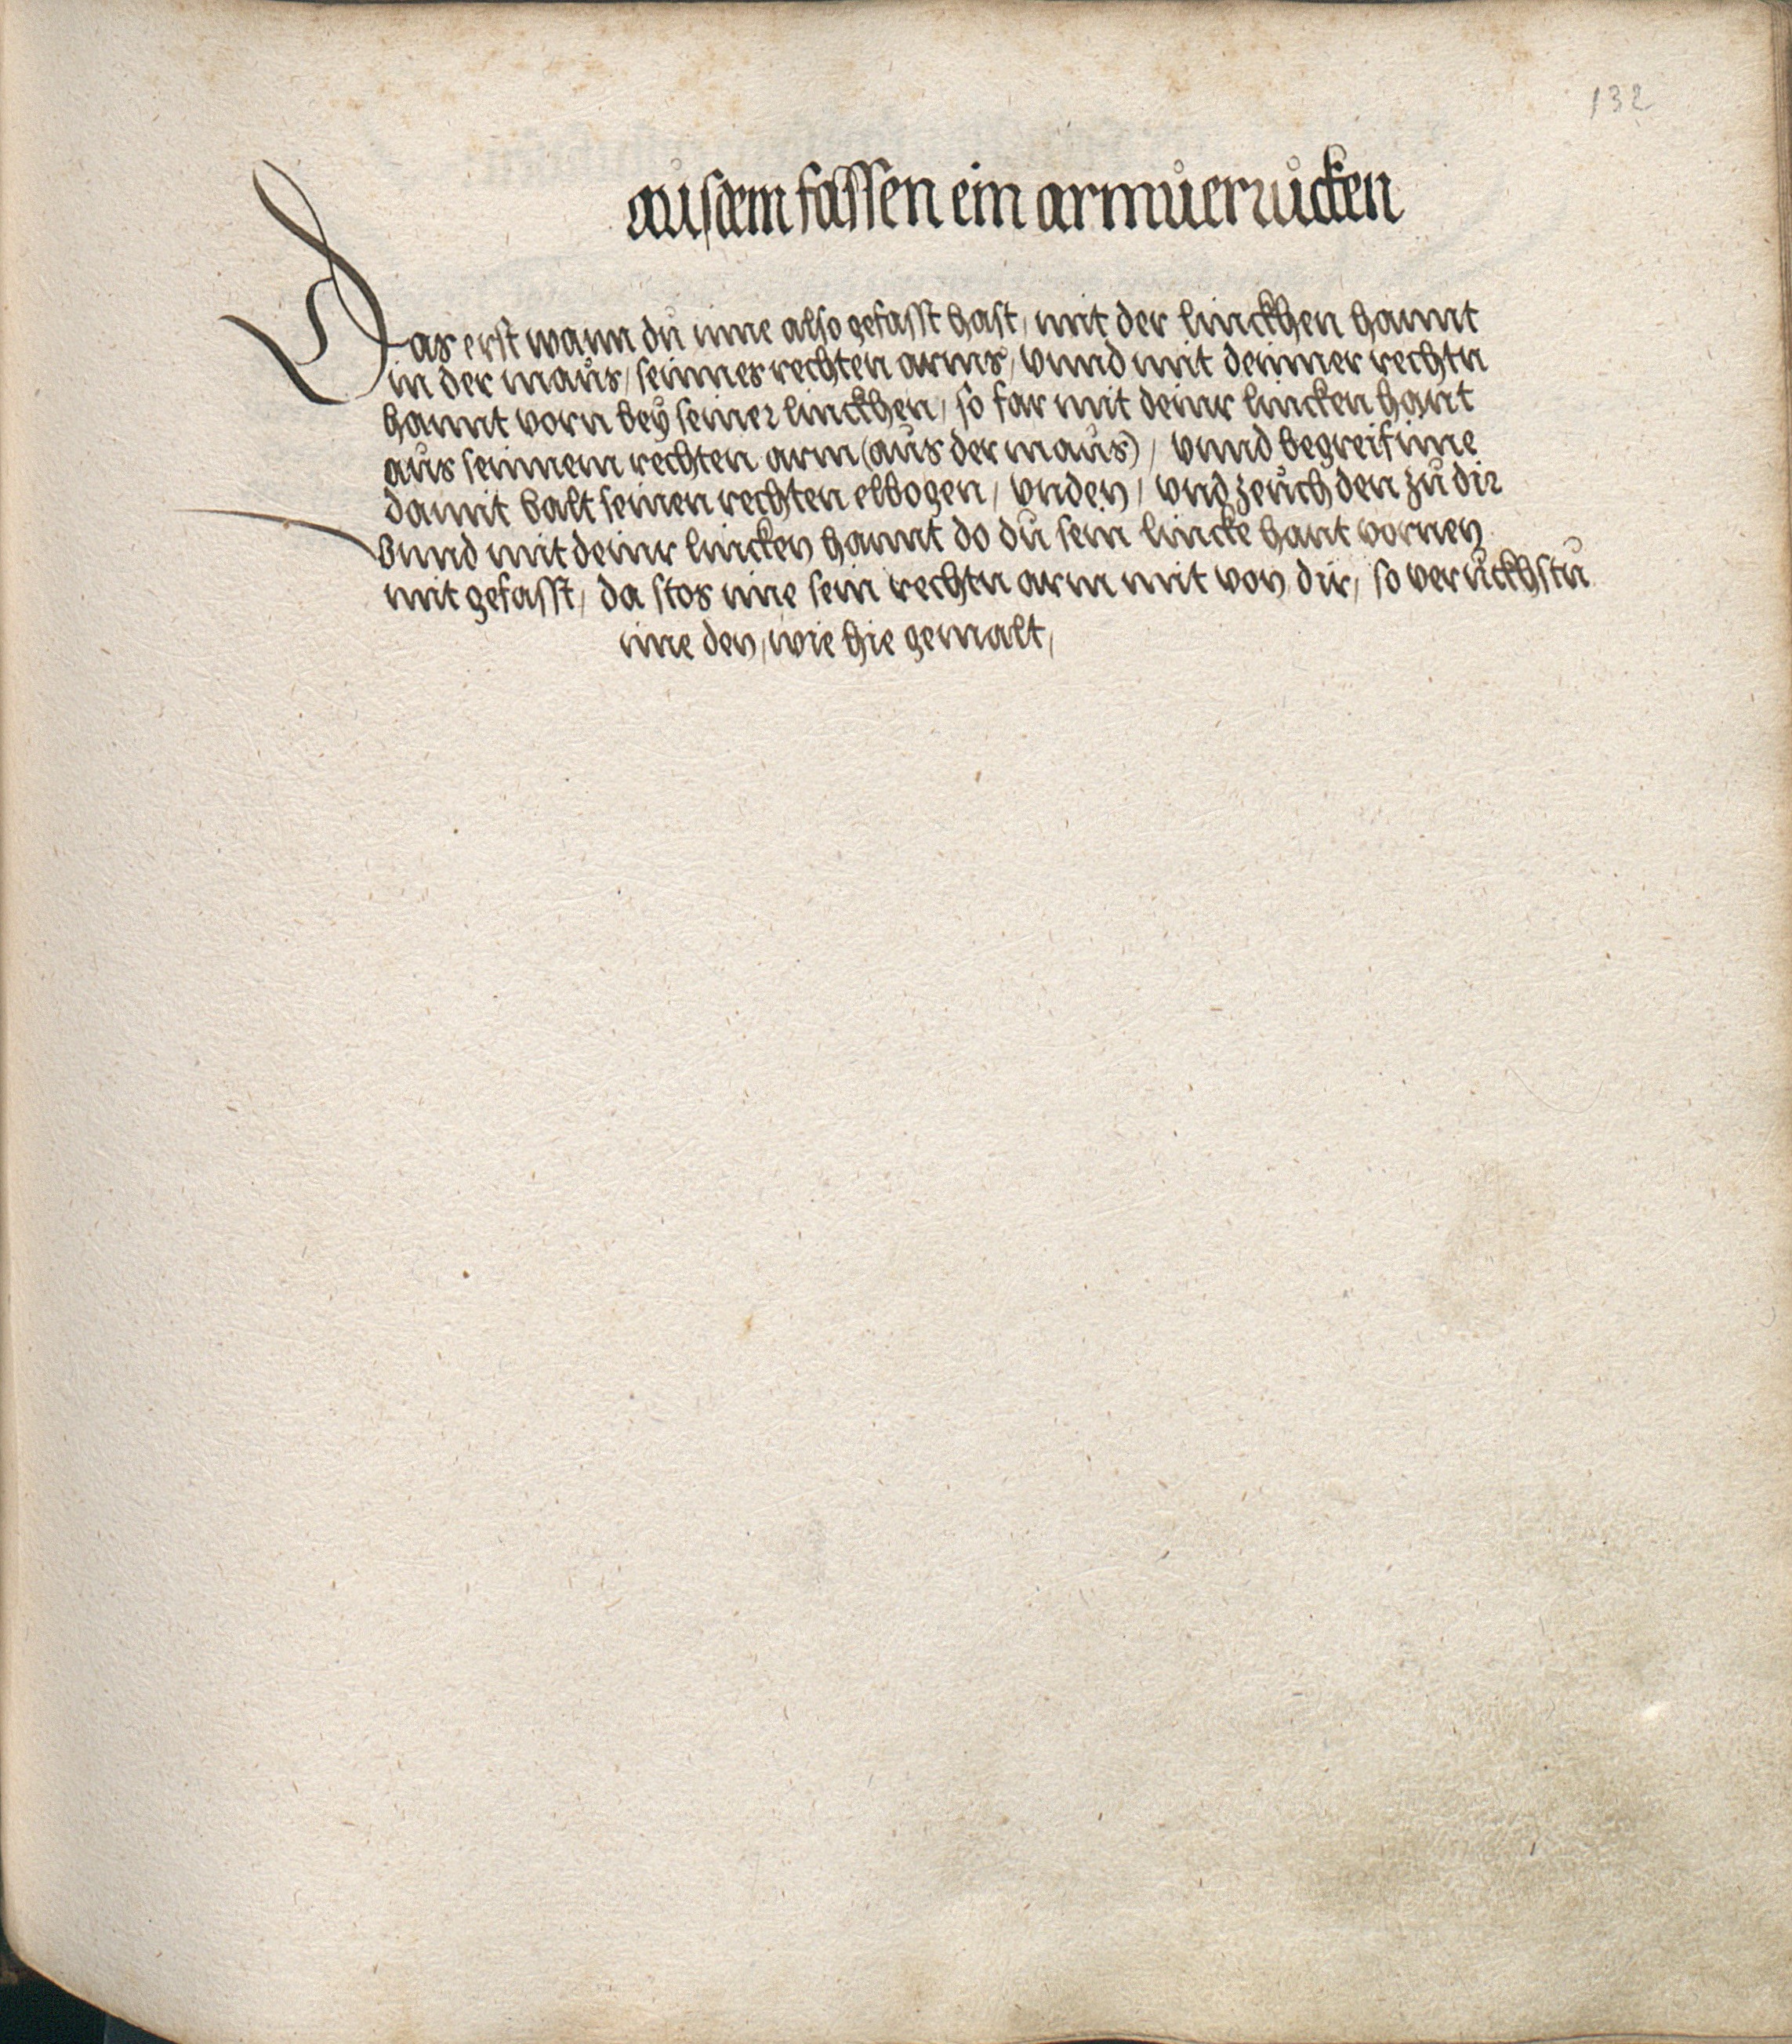 132
ausdem fassen ein armůerrůcken
Das erst wann dů ime also gefasst hast, mit der linckhen hannt
in der maůs, seinnes rechten arms, vnnd mit deinner rechtn
hannt vorn bey seiner linckhen, so far mit deinr lincken hant
aus seinnem rechten arm (aus der maůs), vnnd begreif ime
damit balt seinen rechten elbogen, vnden, vnd zeůch den zů dir
Vnnd mit deinr lincken hannt do dů sein lincke hant vornen
mit gefasst, da stos ime sein rechtn arm mit von dir, so verůckhstů
ime den, wie hie gemalt,